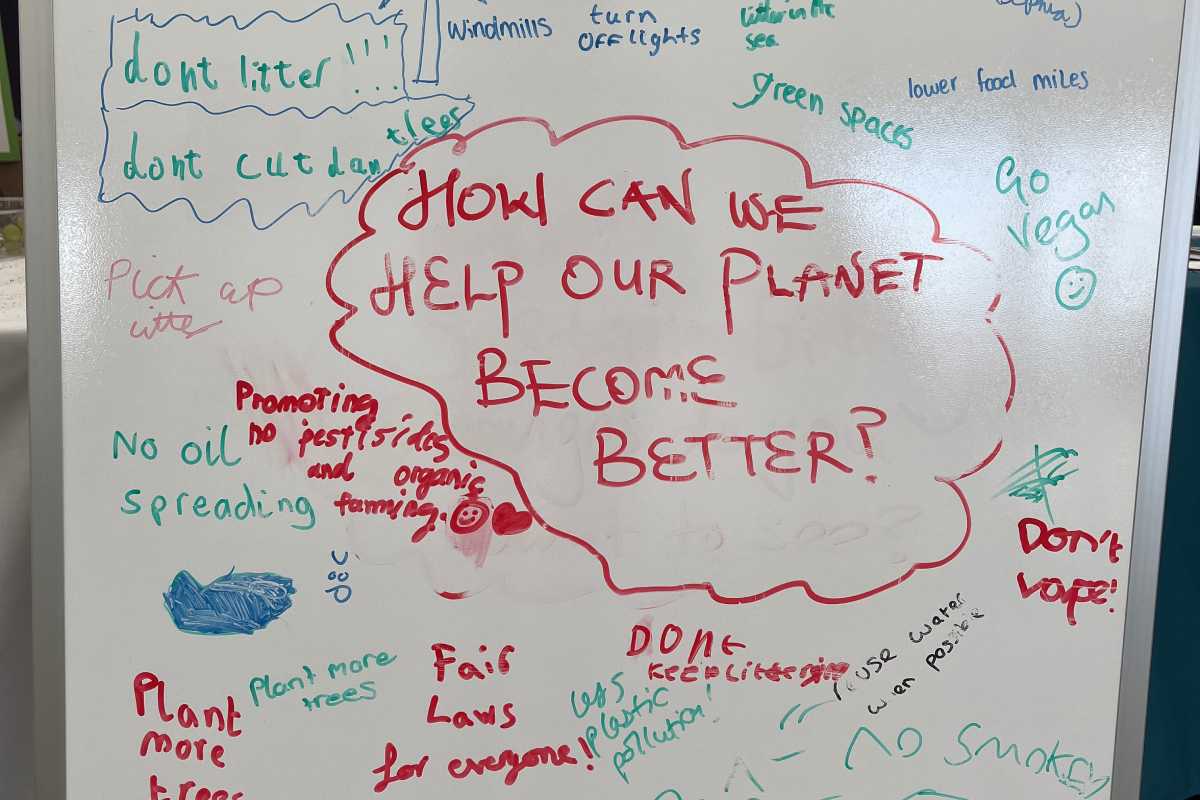 windmills
turn
OFF lights
litter in the
sea
lower food miles
green spaces
dont litter !!!
dont cut dan
trees
Go
vegan
HOW CAN WE
HELP OUR PLANET
BECOME
BETTER?
Pick up
litter
Promoting
no pestisides
and organic
farming.
No oil
spreading
Don't
vape!
Plant
more
trees
Plant more
trees
Fair
Laws
for everyone!!
Dont
keep littering
less
plastic
pollution!
reuse water
when possible
No Smoking